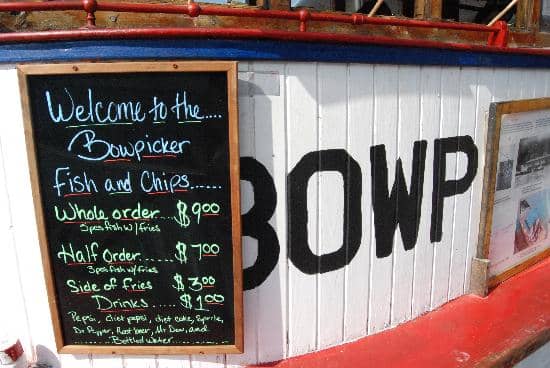 Welcome to the....
Bowpicker
Fish and Chips......
Whole order... $9.00
5pcs fish w/ fries
Half Order..... $7.00
3pcs fish w/ fries
Side of Fries $3.00
Drinks..... $1.00
Pepsi, diet pepsi, diet coke, Sprite,
Dr. Pepper, Root beer, Mt Dew, and
Bottled Water
BOWP